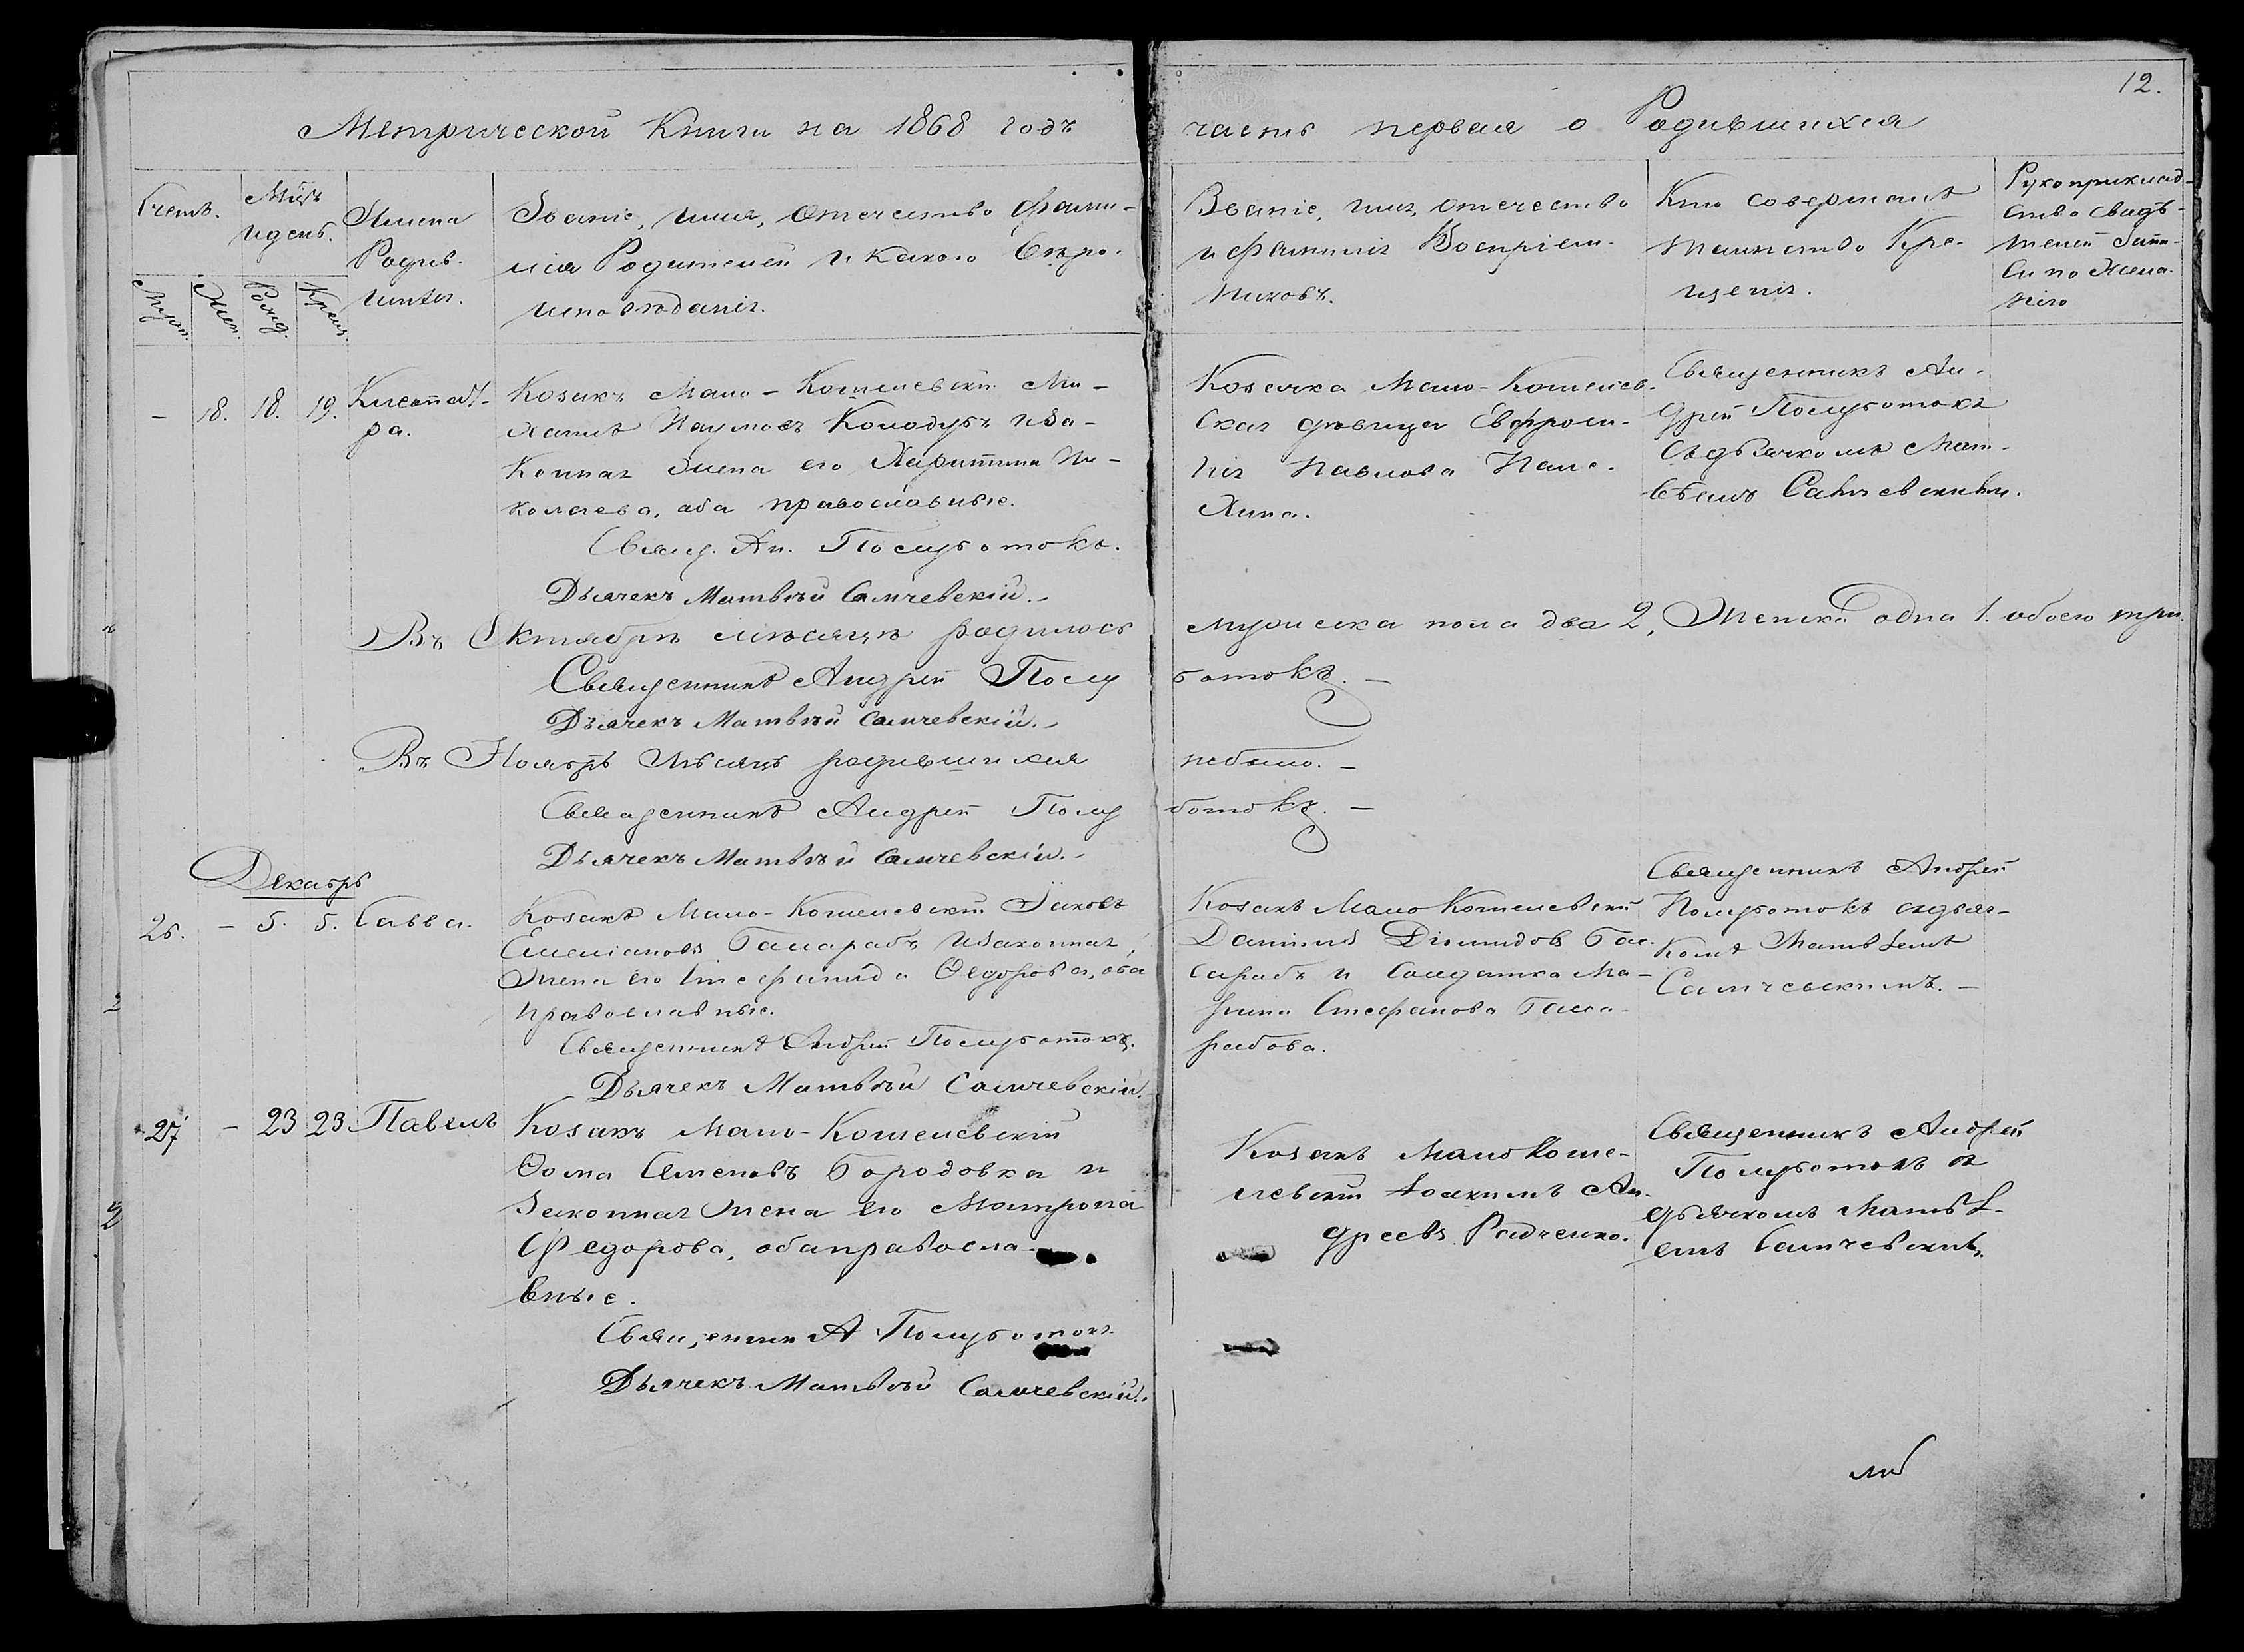 12.
Метрической Книги на 1868 годъ часть первая о Родившихся
Счетъ.
Мцъ
и день.
Муж.
Жен.
Рожд.
Крещ.
Имена
Родив-
шихся.
Званіе, имя, отечество фами-
лія Родителей и какого Вѣро-
исповѣданія.
Званіе, имя, отечество
и фамилія Воспріем-
никовъ.
Кто совершалъ
таинство Кре-
щенія.
Рукоприклад-
ство свидѣ-
телей записи
по Жела-
нію
– 18. 18. 19. Клеопат-
ра.
Козакъ Мало-Кошелевскій Ми-
хаилъ Наумовъ Колодубъ и За-
конная жена его Харитина Ни-
колаева, оба православные.
Свящ. Ан. Полуботокъ.
Дьячекъ Матвѣй Самчевскій.
Козачка Мало-Кошелев-
ская дѣвица Евфроси-
нія Павлова
Священникъ Ан-
дрей Полуботокъ
съ дьячкомъ Мат-
вѣемъ Самчевскимъ.
Въ Октябрѣ мѣсяцѣ родилось мужеска пола два 2, Женска одна 1. обоего три.
Священникъ Андрей Полуботокъ. –
Дьячекъ Матвѣй Самчевскій.
Въ Ноябрѣ мѣсяцѣ родившихся небыло. –
Священникъ Андрей Полуботокъ. –
Дьячекъ Матвѣй Самчевскій.
Декабрь
26. – 5. 5. Савва.
Козакъ Мало-Кошелевскій Іаковъ
Емеліановъ Гасарабъ и Законная
жена его Стефанида Ѳедорова, оба
православные.
Священникъ Андрей Полуботокъ.
Дьячекъ Матвѣй Самчевскій.
Козакъ Мало Кошелевскій
Даніилъ Діомидовъ Гас-
сарабъ и Солдатка Ма-
рина Стефанова Гаса-
рабова.
Священникъ Андрей
Полуботокъ съ дьяч-
комъ Матвѣемъ
Самчевскимъ. –
27 – 23 23 Павелъ
Козакъ Мало-Кошелевскій
Ѳома Семеновъ Бородовка и
Законная жена его Матрона
Федорова, оба правосла-
вные.
Священник А Полуботокъ.
Дьячекъ Матвѣй Самчевскій.
Козакъ Мало Коше-
левскій Іоакимъ Ан-
дреевъ Радченко.
Священникъ Андрей
Полуботокъ съ
дьячкомъ Матвѣ-
емъ Самчевскимъ.